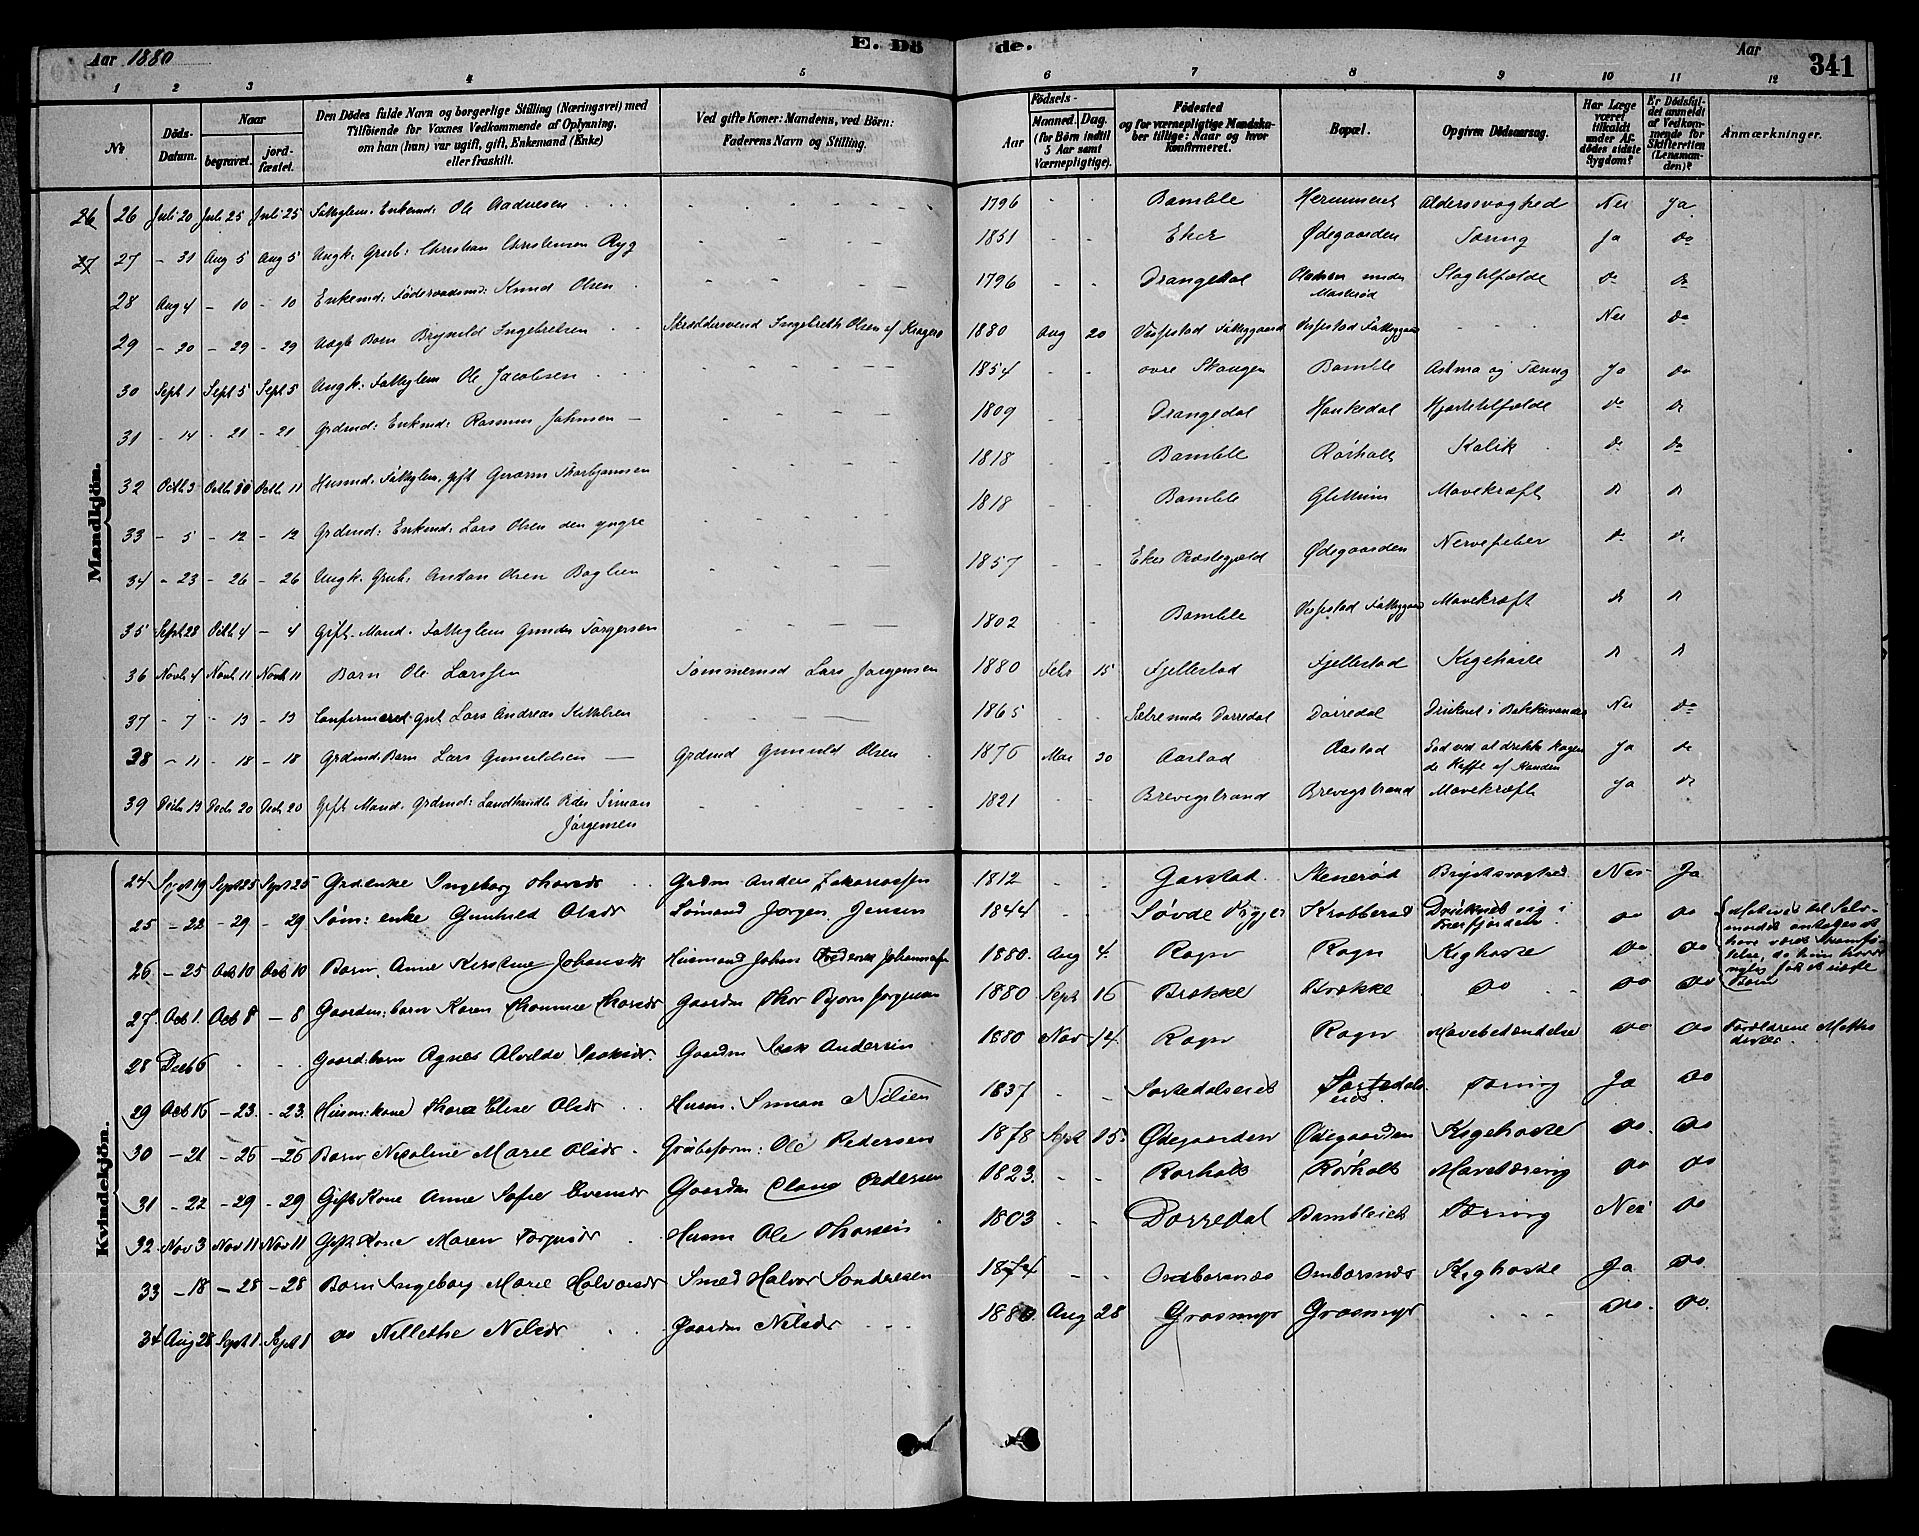 Aar 1880
E. Dö
de.
Aar
341
1 2 3 4 5 6 7 8 9 10 11 12
No
Döds-Datum.
Naar
begravet.
jordfæstet.
Den Dödes fulde Navn og borgerlige Stilling (Næringsvei) med
Tilföiende for Voxnes Vedkommende af Oplysning,
om han (hun) var ugift, gift, Enkemand (Enke)
eller fraskilt.
Ved gifte Koner: Mandens, ved Börn:
Faderens Navn og Stilling.
Födsels-
Aar
Maaned. Dag.
(for Börn indtil
5 Aar samt
Værnepligtige).
Födested
og for værnepligtige Mandskaber tillige: Naar og hvor
konfirmeret.
Bopæl.
Opgiven Dödsaarsag.
Har Læge været tilkaldt under Afdödes sidste Sygdom?
Er Dödsfaldet anmeldt af Vedkommende for Skifteretten (Lensmanden)?
Anmærkninger.
Mandkjön.
26 26 Juli 20 Juli 25 Juli 25 Fattiglem. Enkemd: Ole Aadnesen 1796 Bamble Aldersvaghed Nei Ja
27 27 - 31 Aug 5 Aug 5 Ungk. Grub: Christian Christensen Ryg 1851 Eker Ødegaarden Tæring Ja do
28 Aug 4 - 10 - 10 Enkemd: Föderaadsmd: Knud Olsen 1796 Drangedal Pladsen under Masterød Slagtilfælde do do
29 - 20 - 29 - 29 Uægte Barn Brynild Ingebretsen Skræddersvend Ingebreth Olsen af Kragerø 1880 Aug 20 Vissestad Fattiggaard Vissestad Fattiggaard Nei do
30 Sept 1 Sept 5 Sept 5 Ungk: Fattiglem Ole Jacobsen 1854 øvre Skougen Bamble Astma og Tæring Ja do
31 - 14 - 21 - 21 Grdmd: Enkmd: Rasmus Johnsen 1809 Drangedal Hankedal Hjertetilfælde do do
32 Octb 3 Octb 10 Octb 11 Husmd. Fattiglem, gift Gerorm Thorbjørnsen 1818 Bamble Rørholt Kolik do do
33 - 5 - 12 - 12 Grdmd: Enkemd: Lars Olsen den yngre 1818 Bamble Glittum Mavekræft do do
34 - 23 - 26 - 26 Ungk. Grub. Anton Olsen Boglien 1857 Eker Præstegjæld Ødegaarden Nervefeber do do
35 Sept 28 Octb 4 - 4 Gift Mand. Fattiglem Gunder Torgersen 1802 Bamble Vissestad Fattiggaard Mavekræft do do
36 Novb 4 Novb 11 Novb 11 Barn Ole Larssen Tømmermd Lars Jørgensen 1880 Febr 15 Fjellestad Fjellestad Kighoste do do
37 - 7 - 13 - 13 Confirmered Gut Lars Andreas Kittilsen 1865 Sætre under Dørredal Dørredal Druknet i Bakkevandet Nei do
38 - 11 - 18 - 18 Grdmd. Barn Lars Gunuldsen Grdmd Gunuld Olsen 1876 Mai 30 Aastad Aastad Død ved at drikke kogende Kaffe af Kanden Ja do
39 Decb 13 Decb 20 Decb 20 Gift Mand. Grdmd: Landhandler Peder Simon Jørgensen 1821 Brevigstrand Brevigstrand Mavekræft Ja do
Kvindekjön.
24 Sept 19 Sept 25 Sept 25 Grdenke Ingeborg Thorsdr Grdm Anders Zakariassen 1812 Garstad Stenerød Brystsvaghed Nei Ja
25 - 22 - 29 - 29 Søm: enke Gunhild Olsdr Sømand Jørgen Jensen 1844 Krabberød Druknet sig i Frierfjorden do do
26 - 25 Oct 10 Oct 10 Barn Anne Kirstine Johansdr Husmand Johan Fredrik Johannesen 1880 Aug 4 Rogn Rogn Kighoste do do
27 Oct 1. Oct 8 - 8 Gaardm: barn Karen Thomine Thorsdr Gaardm Thor Bjørn Jørgensen 1880 Sept 16 Brække Brække do do do
28 Decb 6 Gaard: barn Agnes Alvilde Isaksdr. Gaardm Isak Andersen 1880 Nov 14. Rogn Rogn Mavebetændelse do do Forældrene Methodister
29 Oct 16 - 23. - 23. Husm: kone Thora Elise Olsdr Husm. Simon Nilsen 1837 Tostedalseiet Tostedalseiet Tæring Ja do
30 - 21 - 26 - 26 Barn Nicoline Marie Olsdr Grubeform: Ole Pedersen 1878 Sept 15. Ødegaarden Ødegaarden Kighoste do do
31 - 22 - 29 - 29 Gift Kone Anne Sofie Evensdr Gaardm Claus Pedersen 1823. Rørholt Rørholt Mavetæring do do
32. Nov 3 Nov 11 Nov 11 Gift Kone Maren Torgersdr Husm Ole Thorsen 1803 Dørredal Bambleiet Tæring Nei do
33 - 18 - 28 - 28 Barn Ingeborg Marie Halvorsdr Smed Halvor Sondresen 1874 Ombørsnæs Ombørsnæs Kighoste Ja do
34 Aug 28 Sept 1. Sept 1 do Nillethe Nilsdr Gaardm Nilsdr 1880 Aug 28 Grasmyr Grasmyr do do.